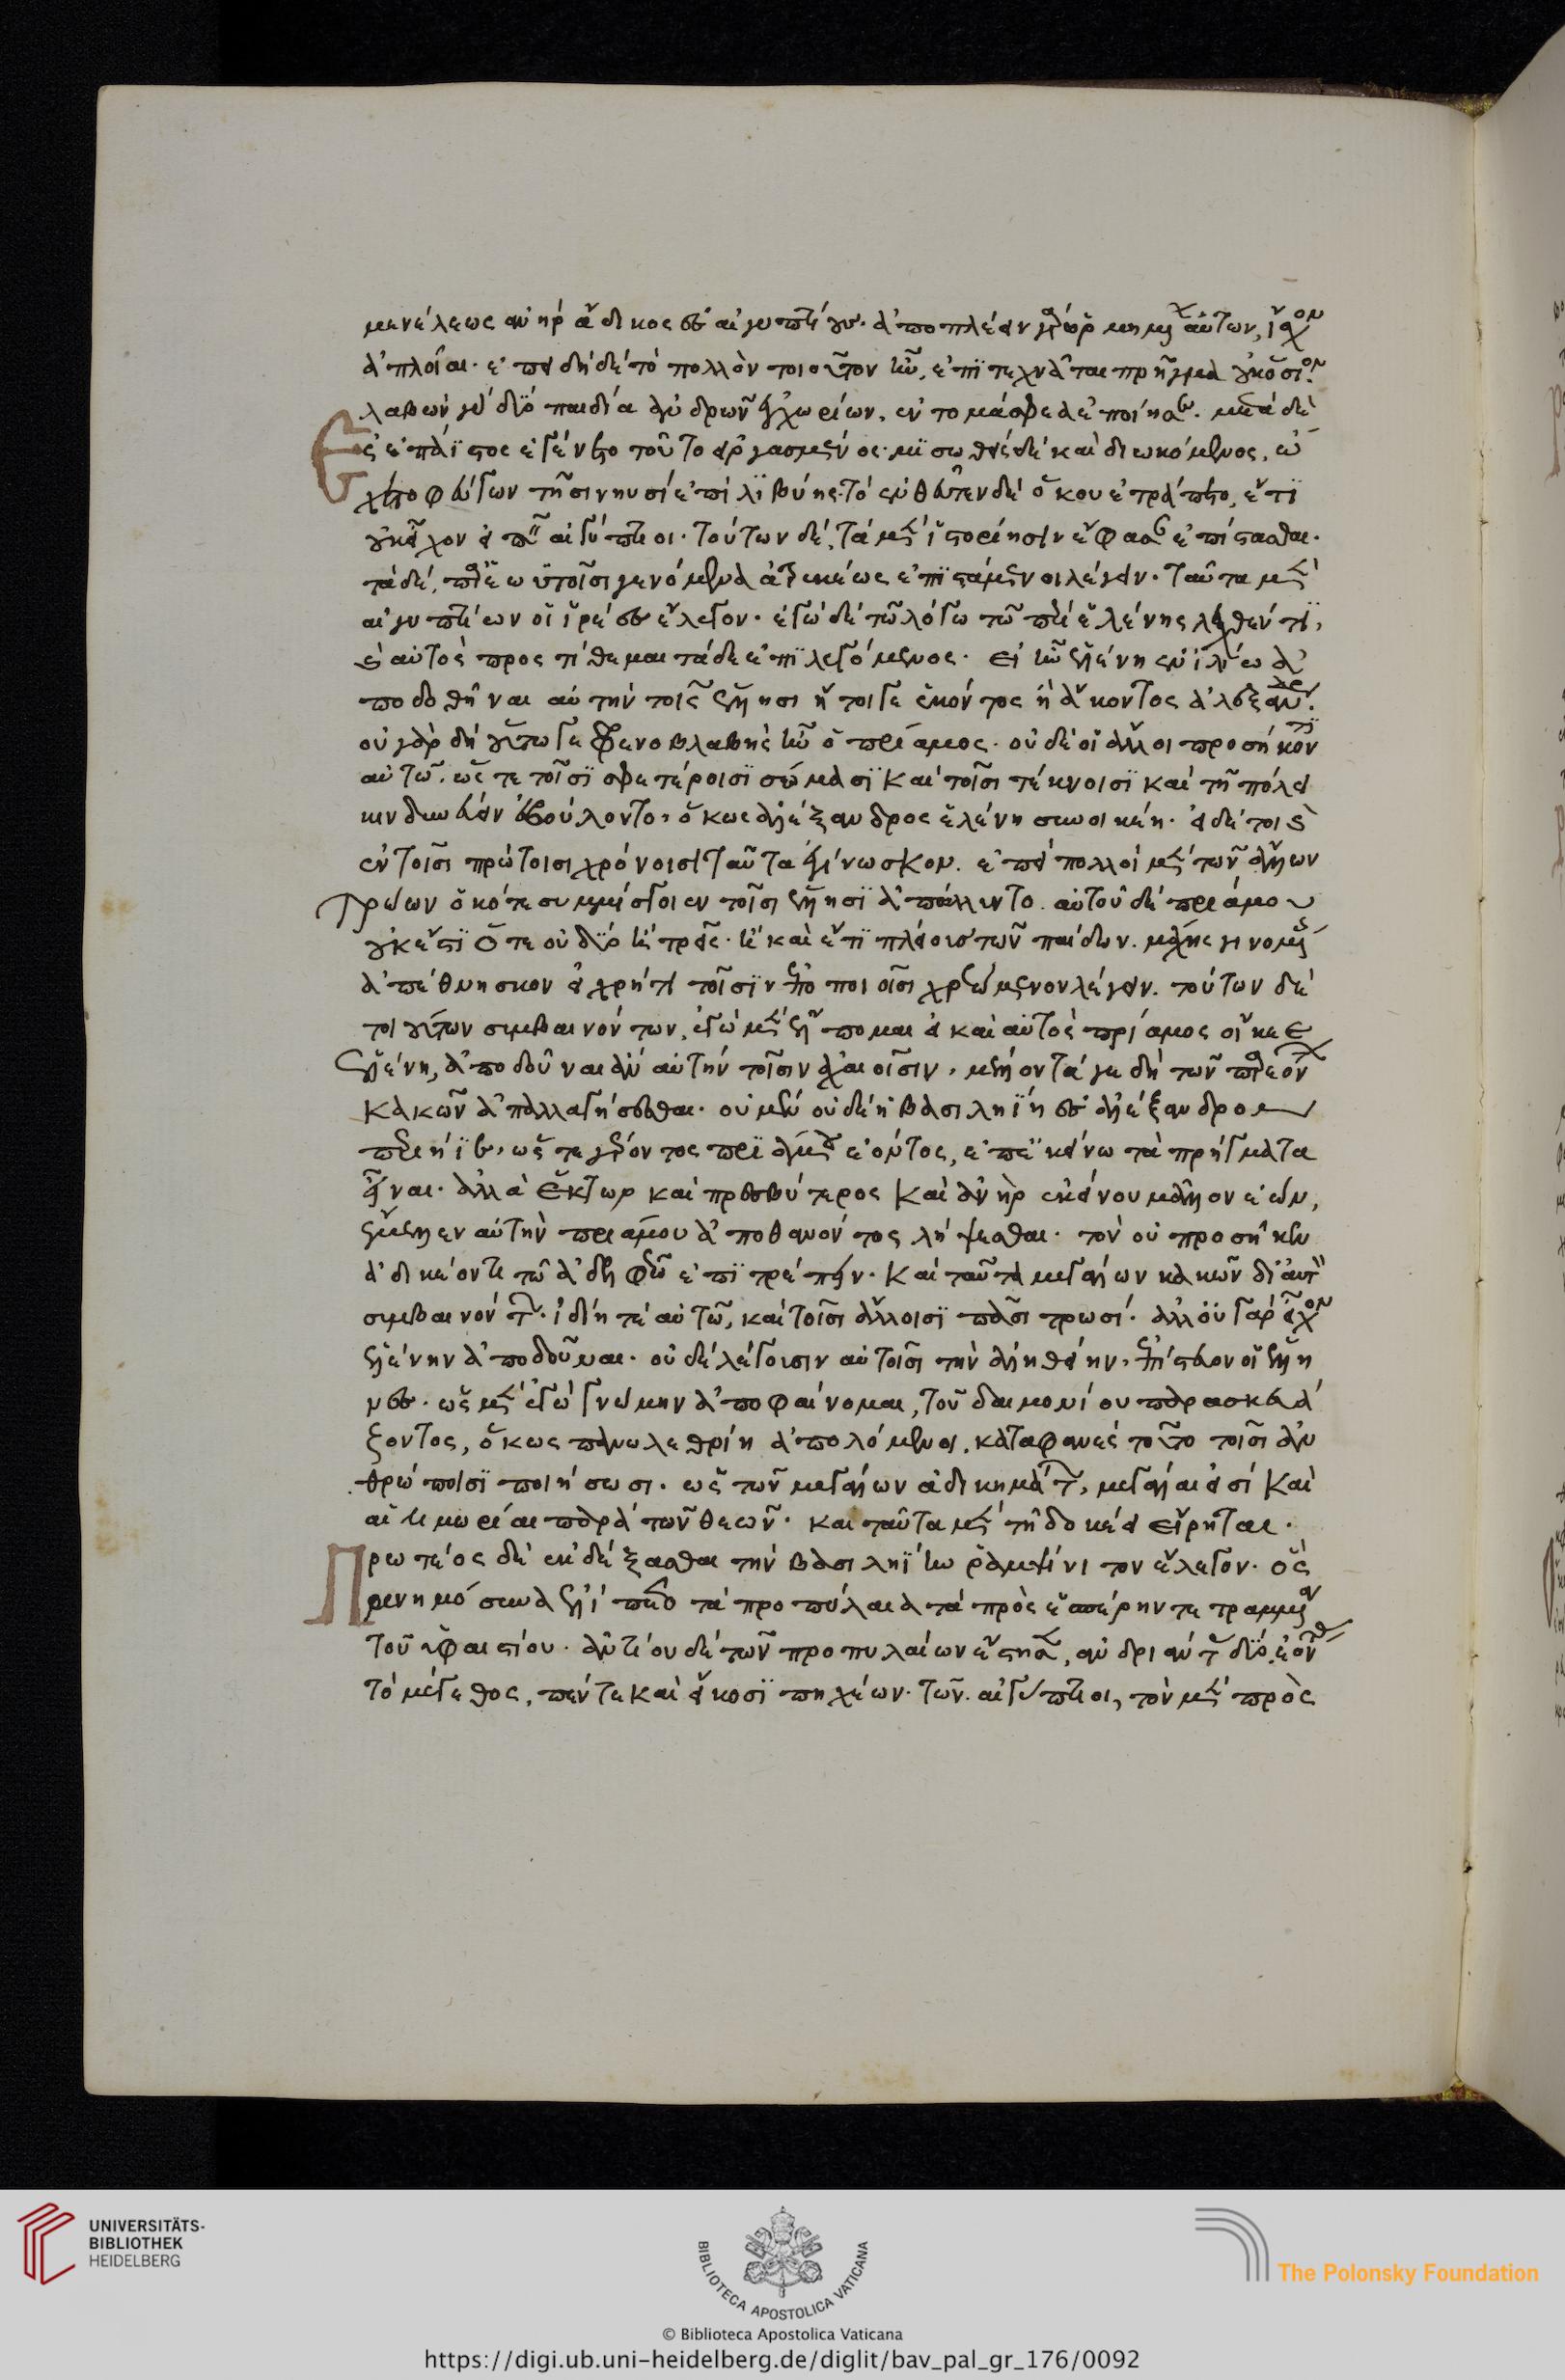 μενέλεως ἀνὴρ ἄδικος ἐς αἰγυπτίους. ἀποπλέειν γὰρ ὡρμημένον αὐτὸν, ἴσχον
ἄπλοιαι. ἐπειδὴ δὲ τὸ πολλὸν τοιοῦτον ἦν, ἐπιτεχνᾶται πρῆγμα οὐκ ὅσιον.
λαβὼν γὰρ δύο παιδία ἀνδρῶν ἐπιχωρίων, ἔντομά σφεα ἐποίησε. μετὰ δὲ
ὡς ἐπάϊστος ἐγένετο τοῦτο ἐργασμένος. μισηθεὶς δὲ καὶ διωκόμενος, ᾤ
χετο φεύγων τῇσι νηυσὶ ἐπὶ λιβύης. τὸ ἐνθεῦτεν δὲ ὅκου ἐτράπετο, ἔτι
οὐκ εἶχον εἰπεῖν αἰγύπτιοι. τούτων δὲ, τὰ μὲν ἱστορίῃσιν ἔφασαν ἐπίστασθαι.
τὰ δὲ, παρ' ἑωυτοῖσι γενόμενα ἀτρεκέως ἐπιστάμενοι λέγειν. ταῦτα μὲν
αἰγυπτίων οἱ ἱρέες ἔλεγον. ἐγὼ δὲ τῶ λόγω τῶ περὶ ἑλένης λεχθέντι,
καὶ αὐτὸς προστίθεμαι τάδε ἐπιλεγόμενος. εἰ ἦν ἑλένη ἐν ἰλίω ἀ
ποδοθῆναι αὐτὴν τοῖς ἕλλησι ἤτοι γε ἑκόντος ἢ ἄκοντος ἀλεξάνδρου.
οὐ γὰρ δὴ οὕτω γε φρενοβλαβὴς ἦν ὁ πρίαμος. οὐδὲ οἱ ἄλλοι προσήκοντες
αὐτῶ. ὥστε τοῖσι σφετέροισι σώμασι καὶ τοῖσι τέκνοισι καὶ τῇ πόλει
κινδυνεύειν ἐβούλοντο, ὅκως ἀλέξανδρος ἑλένῃ συνοικέῃ. εἰ δέ τοι καὶ
ἐν τοῖσι πρώτοισι χρόνοισι ταῦτα ἐγίνωσκον. ἐπεὶ πολλοὶ μὲν τῶν ἄλλων
τρώων ὁκότε συμμίσγοιεν τοῖσι ἕλλησι ἀπώλλυντο. αὐτοῦ δὲ πριάμου
οὐκ ἔστι ὅτε οὐ δύο ἢ τρεῖς. ἢ καὶ ἔτι πλείους τῶν παίδων. μάχης γινομένης
ἀπέθνησκον εἰ χρή τι τοῖσιν ἐποποιοῖσι χρεώμενον λέγειν. τούτων δὲ
τοιούτων συμβαινόντων, ἐγὼ μὲν ἔλπομαι εἰ καὶ αὐτὸς πρίαμος οἴκεε
ἑλένῃ, ἀποδοῦναι ἂν αὐτὴν τοῖσιν ἀχαιοῖσιν, μέλλοντά γε δὴ τῶν παρεόντων
κακῶν ἀπαλλαγήσεσθαι. οὐ μὲν οὐδὲ ἡ βασιληΐη ἐς ἀλέξανδρον
περιήϊε, ὥστε γέροντος πριάμου ἐόντος, ἐπ' ἐκείνω τὰ πρήγματα
εἶναι. ἀλλὰ ἕκτωρ καὶ πρεσβύτερος καὶ ἀνὴρ ἐκείνου μᾶλλον ἐὼν,
ἔμελλεν αὐτὴν πριάμου ἀποθανόντος λήψεσθαι. τὸν οὐ προσῆκεν
ἀδικέοντι τῶ ἀδελφεῶ ἐπιτρέπειν. καὶ ταῦτα μεγάλων κακῶν δι' αὐτὸν
συμβαινόντων. ἰδίῃ τε αὐτῶ, καὶ τοῖσι ἄλλοισι πᾶσι τρωσί. ἀλλ' οὐ γὰρ εἶχον
ἑλένην ἀποδοῦναι. οὐδὲ λέγουσιν αὐτοῖσι τὴν ἀληθείην, ἐπίστευον οἱ ἕλλη
νες. ὡς μὲν ἐγὼ γνώμην ἀποφαίνομαι, τοῦ δαιμονίου παρασκευά
ζοντος, ὅκως πανωλεθρίῃ ἀπολόμενοι, καταφανὲς τοῦτο τοῖσι ἀν
θρώποισι ποιήσωσι. ὡς τῶν μεγάλων ἀδικημάτων, μεγάλαι εἰσὶ καὶ
αἱ τιμωρίαι παρὰ τῶν θεῶν. καὶ ταῦτα μὲν τῇ δοκέει εἴρηται.
Πρωτέος δὲ ἐκδέξασθαι τὴν βασιληΐην ῥαμψίνιτον ἔλεγον. ὃς
μνημόσυνα ἐλίπετο τὰ προπύλαια τὰ πρὸς ἑσπέρην τετραμμένα
τοῦ ἡφαιστίου. ἀντίους δὲ τῶν προπυλαίων ἔστησε, ἀνδριάντας δύο, ἐόντας
τὸ μέγεθος, πέντε καὶ εἴκοσι πηχέων. τῶν αἰγύπτιοι, τὸν μὲν πρὸς
UNIVERSITÄTS-
BIBLIOTHEK
HEIDELBERG
BIBLIOTECA APOSTOLICA VATICANA
The Polonsky Foundation
© Biblioteca Apostolica Vaticana
https://digi.ub.uni-heidelberg.de/diglit/bav_pal_gr_176/0092